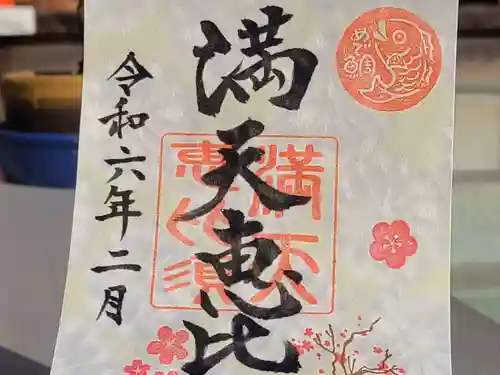 満天恵比
令和六年二月
満天
恵比須
めで鯛